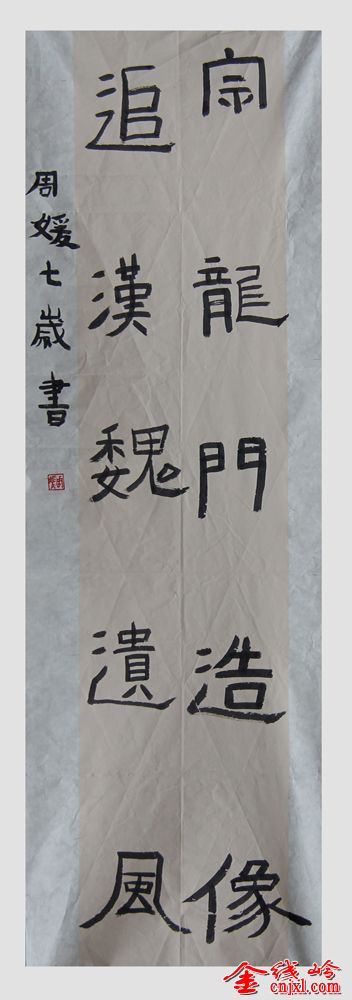 宗龍門造像
追漢魏遺風
周媛七歲書
金线岭
cnjxl.com